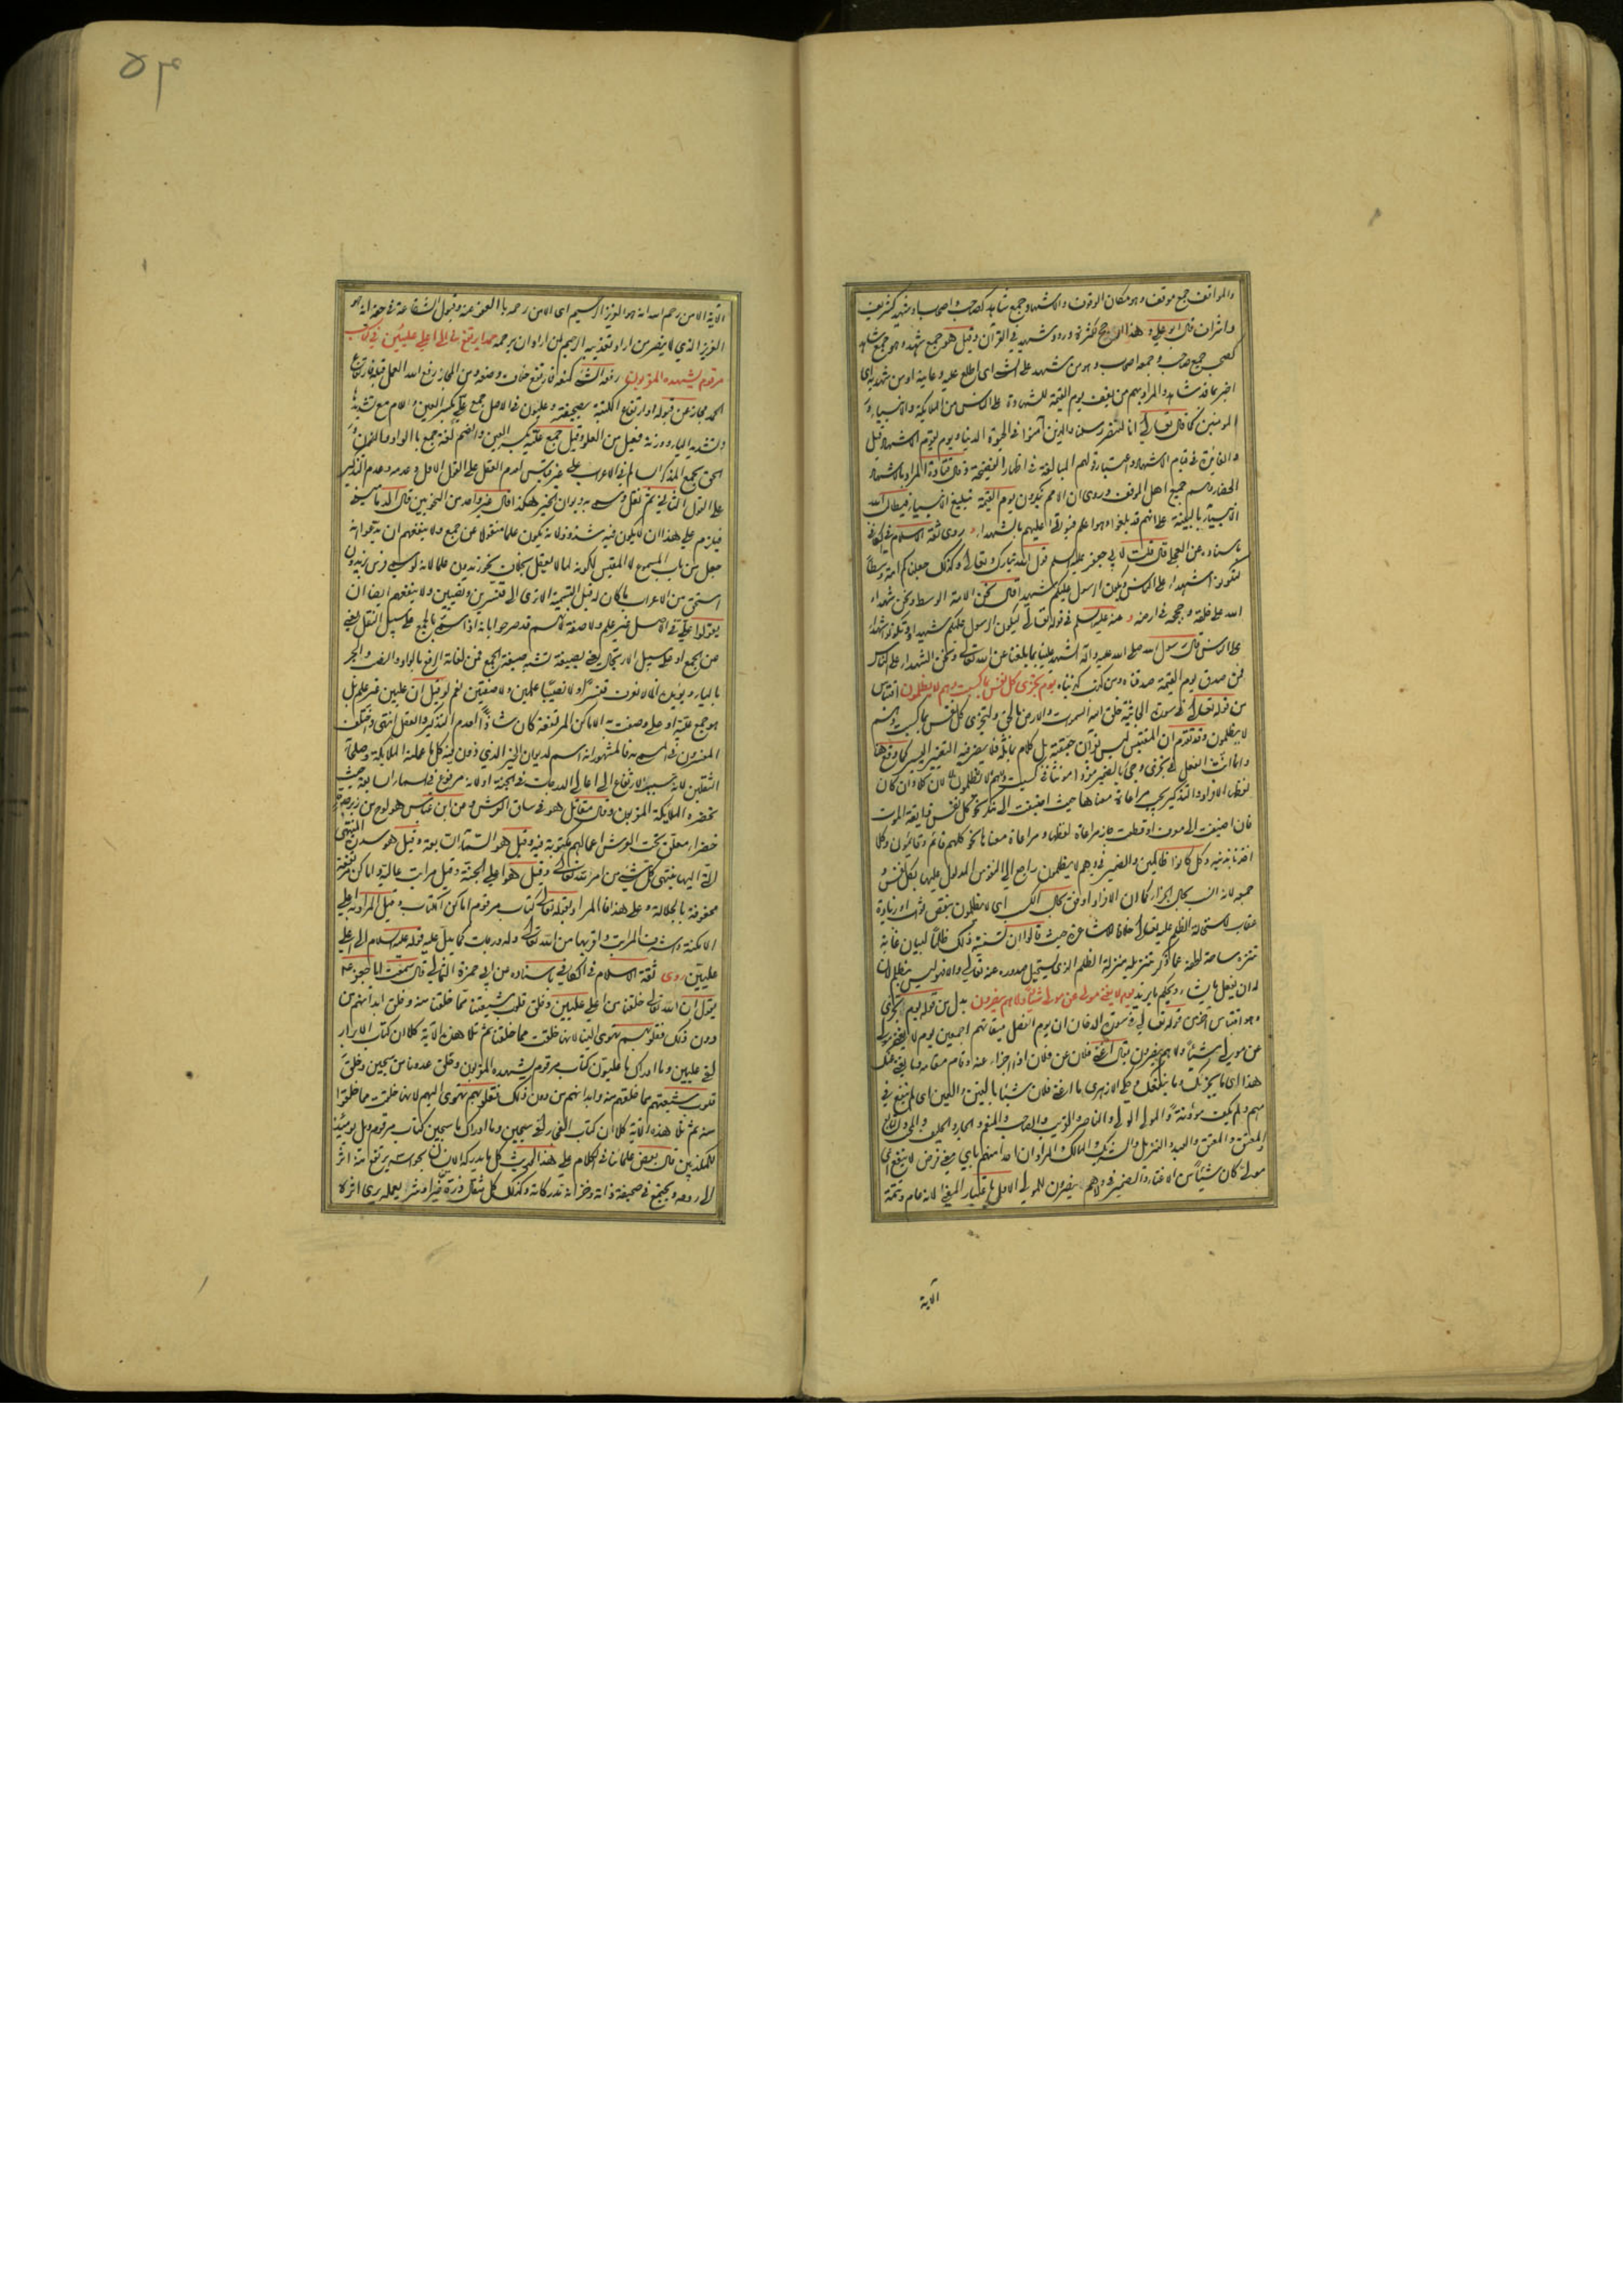 والمواقف جمع موقف وهو مكان الوقوف والاشهاد جمع شاهد كصاحب واصحاب او شهيد كشريف
واشراف قال ابو علي وهذا ارجح لكثرة ورود شهيد في القرآن وقيل هو جمع شهد وهو جمع شاهد
كصحب جمع صاحب وجمعه اصحاب وهو من شهد على الشئ اى اطلع عليه وعاينه او من شهد به اى
اخبر بما قد شاهد والمراد بهم من يقف يوم القيمة للشهادة على الناس من الملائكة والانبياء و
المومنين كما قال تعالى انا لننصر رسلنا والذين آمنوا في الحيوة الدنيا ويوم يقوم الاشهاد قيل
والفائدة في قيام الاشهاد واعتبار قولهم المبالغة في اظهار الفضيحة وقال قتادة المراد بالاشهاد
الحضار وهم جميع اهل الموقف وروى ان الامم يجحدون يوم القيمة تبليغ الانبياء فيطالب الله
الانبياء بالبينة على انهم قد بلغوا وهو اعلم فيؤتى عليهم بالشهداء وروى ثقة الاسلام في الكافي
باسناده عن العجلي قال قلت لابي جعفر عليه السلم قول الله تبارك وتعالى وكذلك جعلناكم امة وسطا
لتكونوا شهداء على الناس ويكون الرسول عليكم شهيدا قال نحن الامة الوسط ونحن شهداء
الله على خلقه وحججه في ارضه وعنه عليه السلم في قوله تعالى ليكون الرسول عليكم شهيدا وتكونوا شهداء
على الناس قال رسول الله صلى الله عليه وآله الشهيد علينا بما بلغنا عن الله تعالى ونحن الشهداء على الناس
فمن صدق يوم القيمة صدقناه ومن كذب كذبناه يوم تجزى كل نفس بما كسبت وهم لا يظلمون اقتباس
من قوله تعالى في سورة الجاثية خلق الله السموات والارض بالحق ولتجزى كل نفس بما كسبت وهم
لا يظلمون وقد تقدم ان المقتبس ليس بقرآن حقيقة بل كلام يماثله فلا يضر فيه التغيير اليسير كما وقع هنا
وانما انث الفعل في تجزى وجئ بالضمير مفردا مونثا في كسبت وجمع في لا يظلمون لان كلا وان كان
لفظه الافراد والتذكير يجب مراعاة معناها حيث اضيفت الى نكرة نحو كل نفس ذائقة الموت
فان اضيفت الى معرفة او قطعت جاز مراعاة لفظها ومراعاة معناها نحو كلهم قائم وقائمون وكلا
اخذنا بذنبه وكل كانوا ظالمين والضمير في وهم لا يظلمون راجع الى النفوس المدلول عليها بكل نفس و
جمعه لانه انسب بحال الجزاء كما ان الافراد اوفق بحال الكسب اى لا يظلمون بنقص ثواب او زيادة
عقاب لاستحالة الظلم عليه تعالى خلافا للاشاعرة حيث قالوا ان تسمية ذلك ظلما لبيان غاية
تنزه ساحة لطفه عما ذكر بتنزيله منزلة الظلم الذي يستحيل صدوره عنه تعالى والا فهو ليس بظلم لان
له ان يفعل ما يشاء ويحكم ما يريد يوم لا يغني مولى عن مولى شيئا ولا هم ينصرون بدل من قوله يوم تجزى
وهو اقتباس آخر من قوله تعالى في سورة الدخان ان يوم الفصل ميقاتهم اجمعين يوم لا يغني مولى
عن مولى شيئا ولا هم ينصرون يقال اغنى فلان عن فلان اذا اجزاء عنه وقام مقامه وما يغني عنك
هذا اى ما يجزيك وما ينفعك وحكى الازهرى ما اغنى فلان شيئا بالغين والعين اى لم ينفع في
مهم ولم يكف مؤونة والمولى الولي والناصر والقريب والصاحب والمنعم والجار والحليف وابن العم
والمعتق والمعتق والعبد والنزيل والشريك والمالك المراد ان احدا منهم باي معنى فرض لا ينفع اى
مولى كان شيئا من الاغناء والضمير في ولا هم ينصرون للمولى الاول باعتبار المعنى لانه عام وتتمة
الآية
۵۴
الآية الا من رحم الله انه هو العزيز الرحيم اى الا من رحمه بالعفو عنه وقبول الشفاعة في حقه انه هو
العزيز الذي لا ينصر من اراد تعذيبه الرحيم لمن اراد ان يرحمه حمدا يرتفع منا الى اعلى عليين في كتاب
مرقوم يشهده المقربون رفع الشئ كمنع فارتفع خلاف وضعه ومن المجاز رفع الله العمل قبله فارتفاع
الحمد مجاز عن قبوله او ارتفاع الكتبة بصحيفته وعليون في الاصل جمع علي بكسر العين واللام مع تشديدها
وتشديد الياء ووزنه فعيل من العلو وقيل جمع علية بكسر العين والضم لغة جمع بالواو والنون و
الحق بجمع المذكر السالم في الاعراب على غير قياس لعدم العقل على القول الاول وعدمه وعدم التذكير
على القول الثاني ثم نقل وسمى به ديوان الخير هكذا قال غير واحد من النحويين قال الدماميني
فيلزم على هذا ان لا يكون فيه شذوذ لانه يكون علما منقولا عن جمع ولا ينفعهم ان يدعوا انه
جعل من باب المسموع لا المقيس لكونه لما لا يعقل
استحق من الاعراب ما كان له قبل التسمية الا ترى الى قنسرين ونصيبين ولا ينفعهم ايضا ان
يقولوا علي في الاصل غير علم ولا صفة لانهم قد صرحوا بانه اذا سمي بالجمع على سبيل النقل يعني
عن الجمع او على سبيل الارتجال يعني بصيغة تشبه صيغة الجمع فمن لغاته الرفع بالواو والنصب والجر
بالياء
هو جمع علية او علي وصفت به الاماكن المرتفعة كان شاذا لعدم التذكير والعقل انتهى واختلف
المفسرون في المسمى به فالمشهور انه اسم لديوان الخير الذي دون فيه كل ما عملته الملائكة وصلحاء
الثقلين لانه سبب الارتفاع الى اعالي الدرجات في الجنة او لانه مرفوع في السماء السابعة حيث
تحضره الملائكة المقربون وقال مقاتل هو في ساق العرش وعن ابن عباس هو لوح من زبرجدة
خضراء معلق تحت العرش اعمالهم مكتوبة فيه وقيل هو السماء السابعة وقيل هو سدرة المنتهى
التي اليها ينتهى كل شئ من امر الله تعالى وقيل هو اعلى الجنة وقيل مراتب عالية واماكن مرتفعة
محفوفة بالجلالة وعلى هذا فالمراد بقوله تعالى كتاب مرقوم اماكن الكتاب وقيل المراد به اعلى
الامكنة واشرف المراتب واقربها من الله تعالى وله درجات كما يدل عليه قوله عليه السلام الى اعلى
عليين روى ثقة الاسلام في الكافي باسناده عن ابي حمزة الثمالي قال سمعت ابا جعفر ع
يقول ان الله تعالى خلقنا من اعلى عليين وخلق قلوب شيعتنا مما خلقنا منه وخلق ابدانهم من
دون ذلك فقلوبهم تهوى الينا لانها خلقت مما خلقنا ثم تلا هذه الآية كلا ان كتاب الابرار
لفي عليين وما ادراك ما عليون كتاب مرقوم يشهده المقربون وخلق عدونا من سجين وخلق
قلوب شيعتهم مما خلقهم منه وابدانهم من دون ذلك فقلوبهم تهوى اليهم لانها خلقت مما خلقوا
منه ثم تلا هذه الآية كلا ان كتاب الفجار لفي سجين وما ادراك ما سجين كتاب مرقوم ويل يومئذ
للمكذبين قال بعض علمائنا في الكلام على هذا الحديث كل ما يدركه الانسان بحواسه يرتفع منه اثر
الى روحه ويجتمع في صحيفة ذاته وخزانة مدركاته وكذلك كل مثقال ذرة من خير او شر يعمله يرى اثره